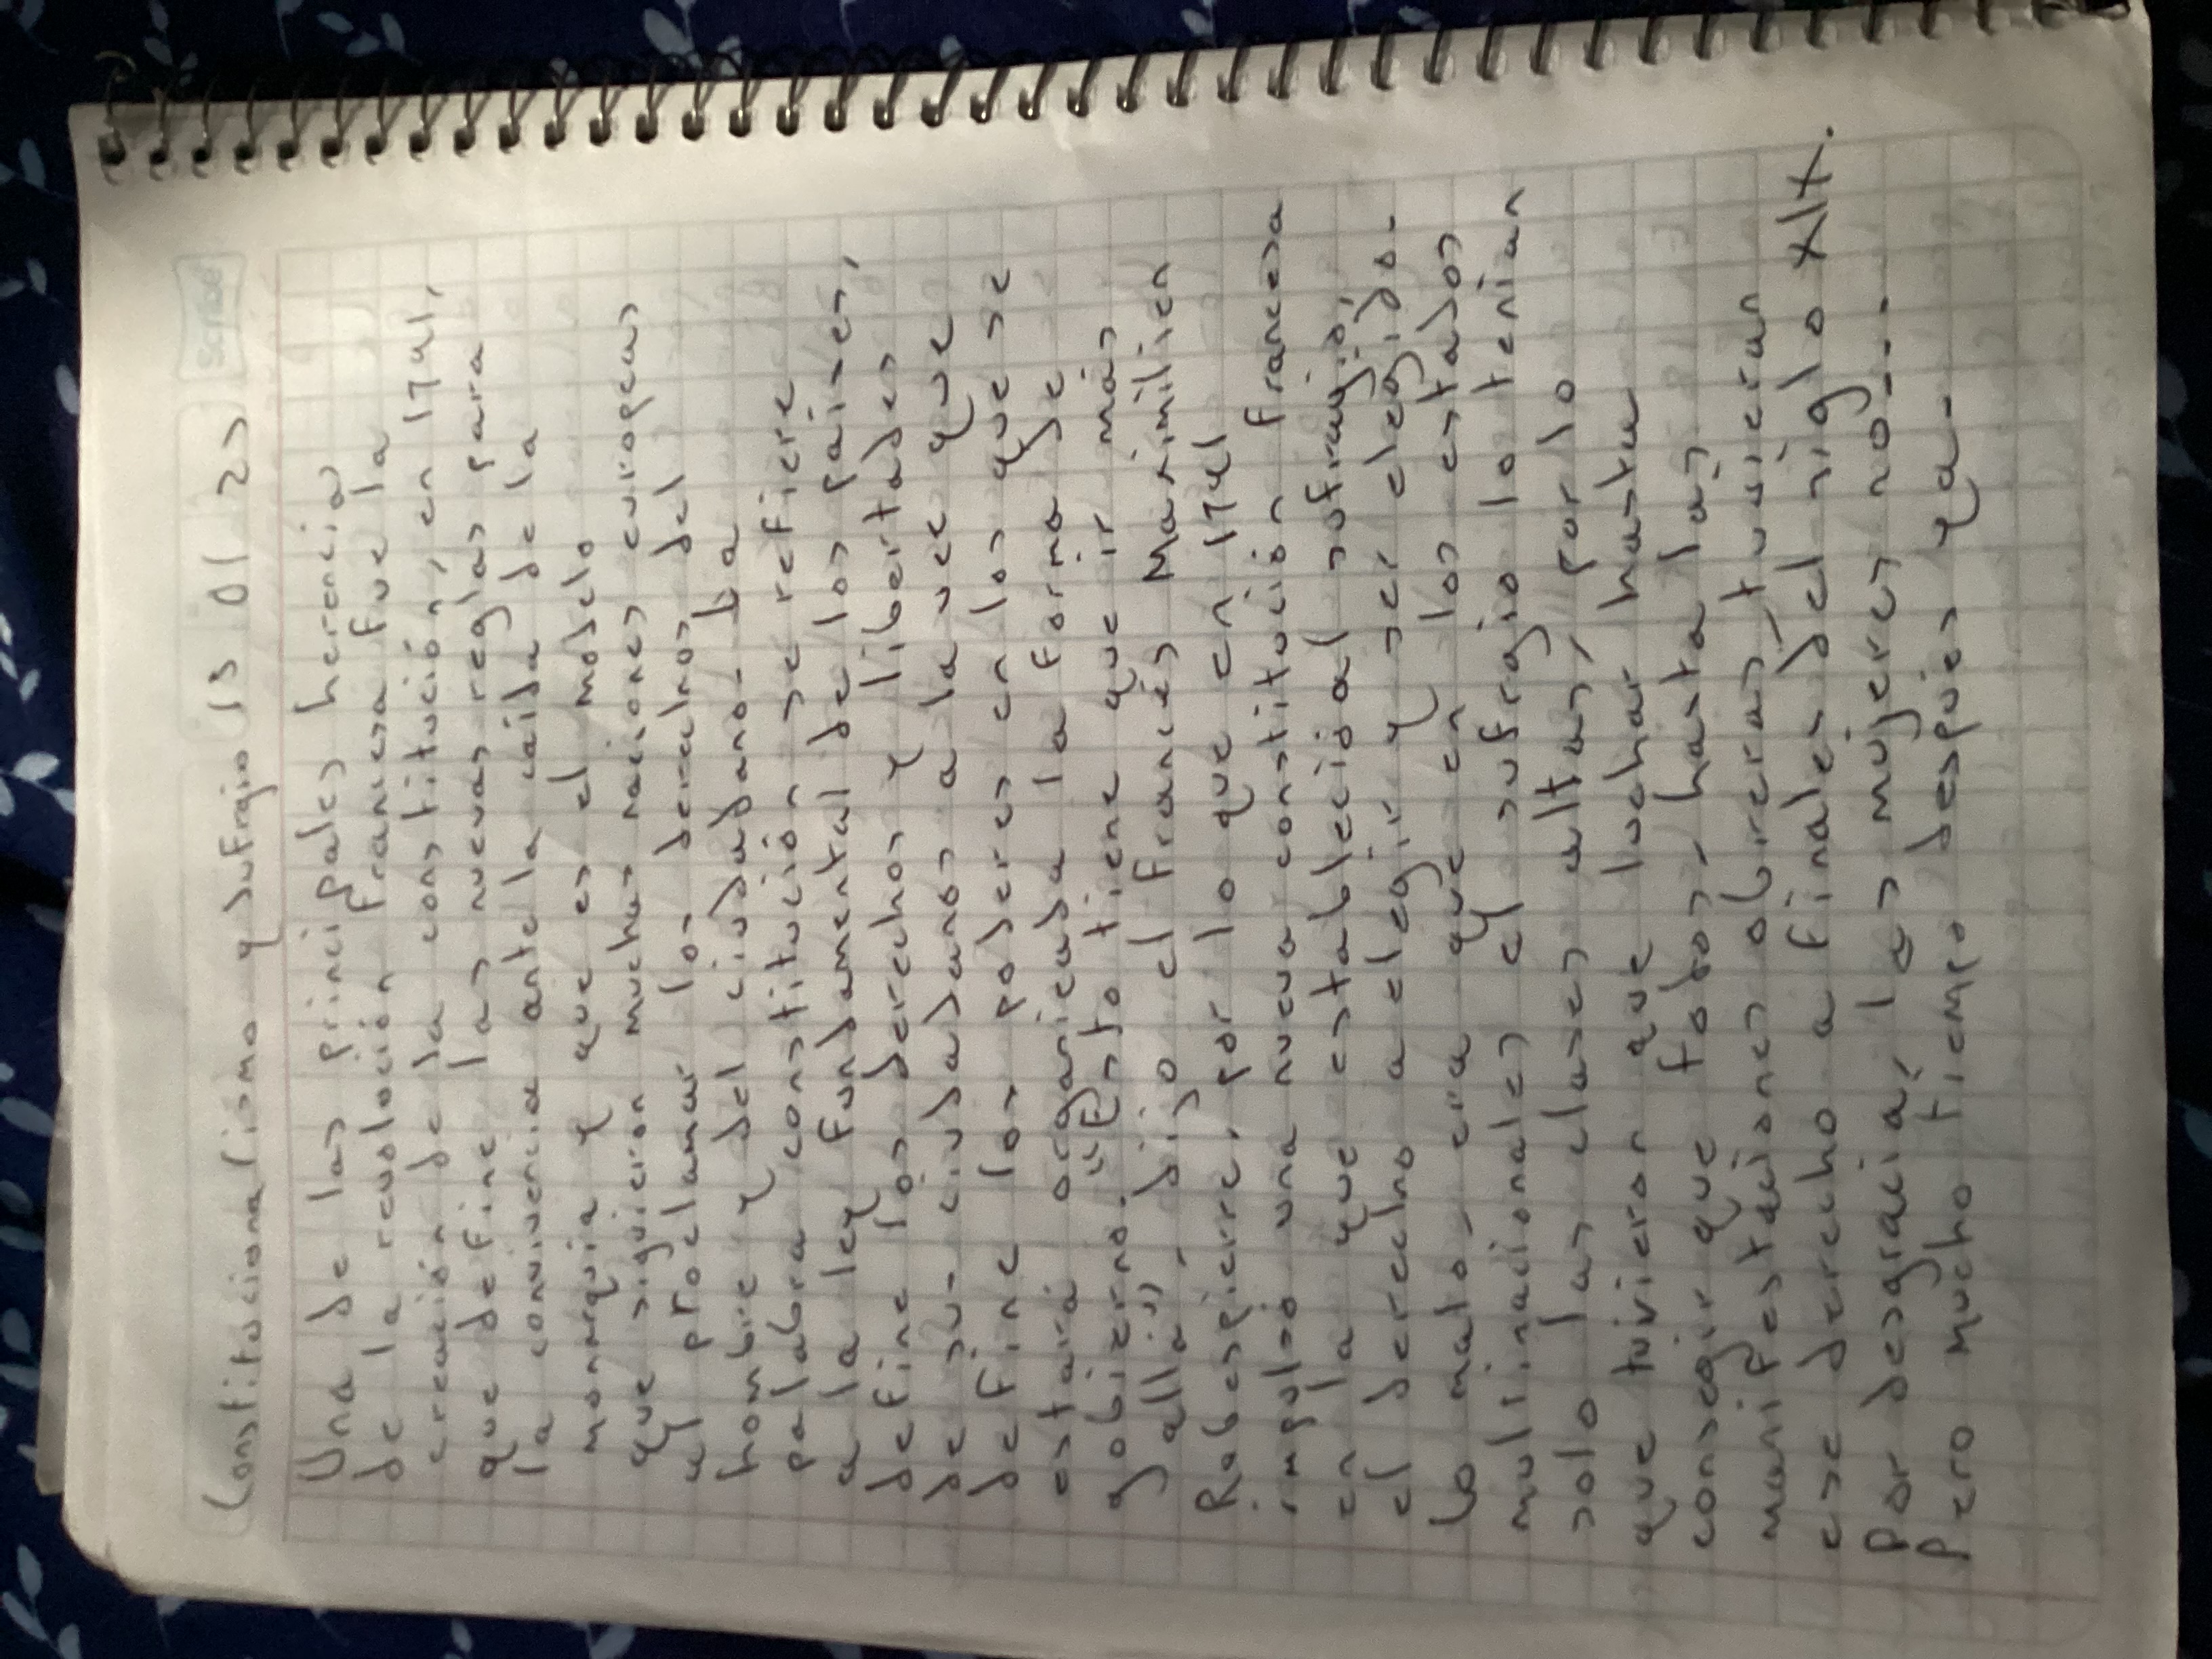 Scribe
Constitucionalismo y sufragio 13 01 23
Una de las principales herencias
de la revolución francesa fue la
creación de la constitución, en 1791,
que define las nuevas reglas para
la convivencia ante la caída de la
monarquia y que es el modelo
que siguieron muchas naciones europeas
al proclamar los derechos del
hombre y del ciudadano. La
palabra constitución se refiere
a la ley fundamental de los países,
define los derechos y libertades
de su- ciudadanos a la vez que
define los poderes en los que se
estará organizada la forma de
gobierno. "Esto tiene que ir más
allá", dijo el francés Maximilien
Robespierre, por lo que en 1791
impulsó una nueva constitución francesa
en la que estableció al sufragio,
el derecho a elegir y ser elegido.
Lo malo, era que en los estados
multinacionales el sufragio lo tenian
solo las clases altas, por lo
que tuvieron que luchar hasta
conseguir que todos, hasta las
manifestaciones obreras, tuvieran
ese derecho a finales del siglo XIX.
Por desgracia, las mujeres no...
Pero mucho tiempo después ya.